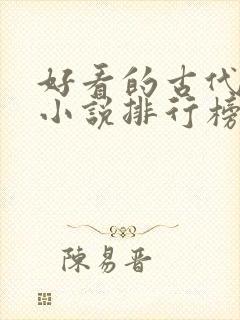 好看的古代
小說排行榜
陳易晉